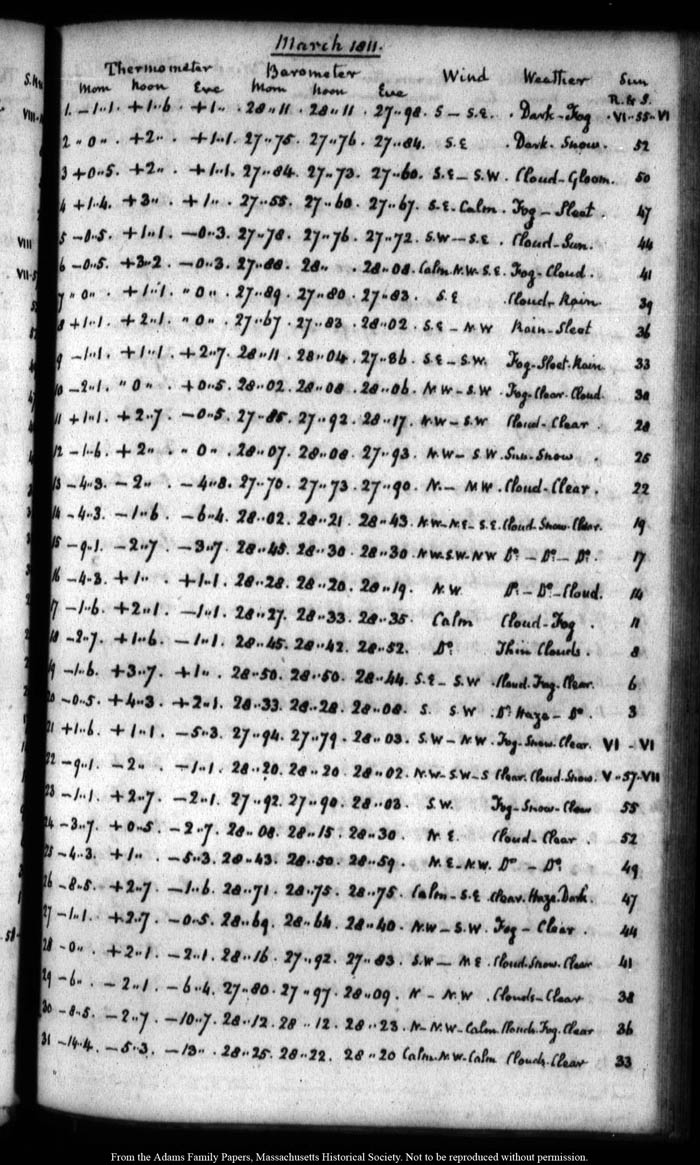 March 1811.
Thermometer Barometer Wind Weather Sun
Morn Noon Eve Morn Noon Eve R. & S.
1. −1··1. +1··6 +1·· . 28··11 . 28··11 . 27··98. S − S.E. . Dark-Fog . VI-55-VI
2 ·· 0 ·· +2·· . +1··1. 27··75. 27··76 . 27··84. S.E . Dark. Snow. 52
3 +0··5. +2·· . +1··1. 27··84. 27··73. 27··60. S.E − S.W. Cloud-Gloom. 50
4 +1··4. +3·· . +1·· . 27··55. 27··60. 27··67. S.E. Calm. Fog − Sleet . 47
5 −0··5. +1··1. −0··3. 27··78. 27··76. 27··72. S.W − S.E . Cloud-Sun. 44
6 −0··5. +3··2. −0··3. 27··88. 28·· . 28··08. Calm. N.W. S.E. Fog-Cloud. 41
7 ·· 0 ·· . +1··1. ·· 0 ·· . 27··89. 27··80. 27··83. S.E Cloud-Rain 39
8 +1··1. +2··1. ·· 0 ·· . 27··67. 27··83. 28··02. S.E − N.W Rain-Sleet 36
9 −1··1. +1··1. +2··7. 28··11. 28··04. 27··86. S.E − S.W. Fog-Sleet-Rain. 33
10 −2··1. ·· 0 ·· . +0··5. 28··02. 28··08. 28··06. N.W − S.W . Fog-Clear. Cloud. 30
11 +1··1. +2··7. −0··5. 27··85. 27··92. 28··17. N.W − S.W Cloud-Clear . 28
12 −1··6. +2·· . ·· 0 ·· . 28··07. 28··08. 27··93. N.W − S.W. Sun-Snow . 25
13 −4··3. −2·· . −4··8. 27··70. 27··73. 27··90. N. − N.W. Cloud-Clear. 22
14 −4··3. −1··6. −6··4. 28··02. 28··21. 28··43. N.W − N.E − S.E. Cloud. Snow. Clear. 19
15 −9··1. −2··7. −3··7. 28··45. 28··30. 28··30 N.W. S.W. N.W Dº. − Dº − Dº. 17
16 −4··3. +1·· . +1··1. 28··28. 28··20. 28··19. N.W. Dº. − Dº-Cloud. 14
17 −1··6. +2··1. −1··1. 28··27. 28··33. 28··35. Calm Cloud-Fog . 11
18 −2··7. +1··6. −1··1. 28··45. 28··42. 28··52. Dº. Thin Clouds. 8
19 −1··6. +3··7. +1·· . 28··50. 28··50. 28··44. S.E − S.W . Cloud. Fog. Clear. 6
20 −0··5. +4··3. +2··1. 28··33. 28··28. 28··08. S. S.W . Dº. Haze − Dº . 3
21 +1··6. +1··1. −5··3. 27··94. 27··79. 28··03. S.W − N.W. Fog. Snow. Clear. VI − VI
22 −9··1. −2·· . −1··1. 28··20. 28··20. 28··02. N.W − S.W − S Clear. Cloud. Snow. V-57-VII
23 −1··1. +2··7. −2··1. 27··92. 27··90. 28··03. S.W. Fog-Snow-Clear 55
24 −3··7. +0··5. −2··7. 28··08. 28··15. 28··30. N.E. Cloud-Clear . 52
25 −4··3. +1·· . −5··3. 28··43. 28··50. 28··59. N.E − N.W. Dº − Dº. 49
26 −8··5. +2··7. −1··6. 28··71. 28··75. 28··75. Calm − S.E Clear. Haze. Dark. 47
27 −1··1. +2··7. −0··5. 28··69. 28··64. 28··40. N.W − S.W. Fog − Clear . 44
28 −0·· . +2··1. −2··1. 28··16. 27··92. 27··83. S.W − N.E . Cloud. Snow. Clear 41
29 −6·· . −2··1. −6··4. 27··80. 27··97. 28··09. N − N.W . Clouds-Clear 38
30 −8··5. −2··7. −10··7. 28··12. 28··12. 28··23. N − N.W − Calm. Clouds. Fog. Clear 36
31 −14··4. −5··3. −13·· . 28··25. 28··22. 28··20 Calm. N.W. Calm Clouds. Clear 33
From the Adams Family Papers, Massachusetts Historical Society. Not to be reproduced without permission.